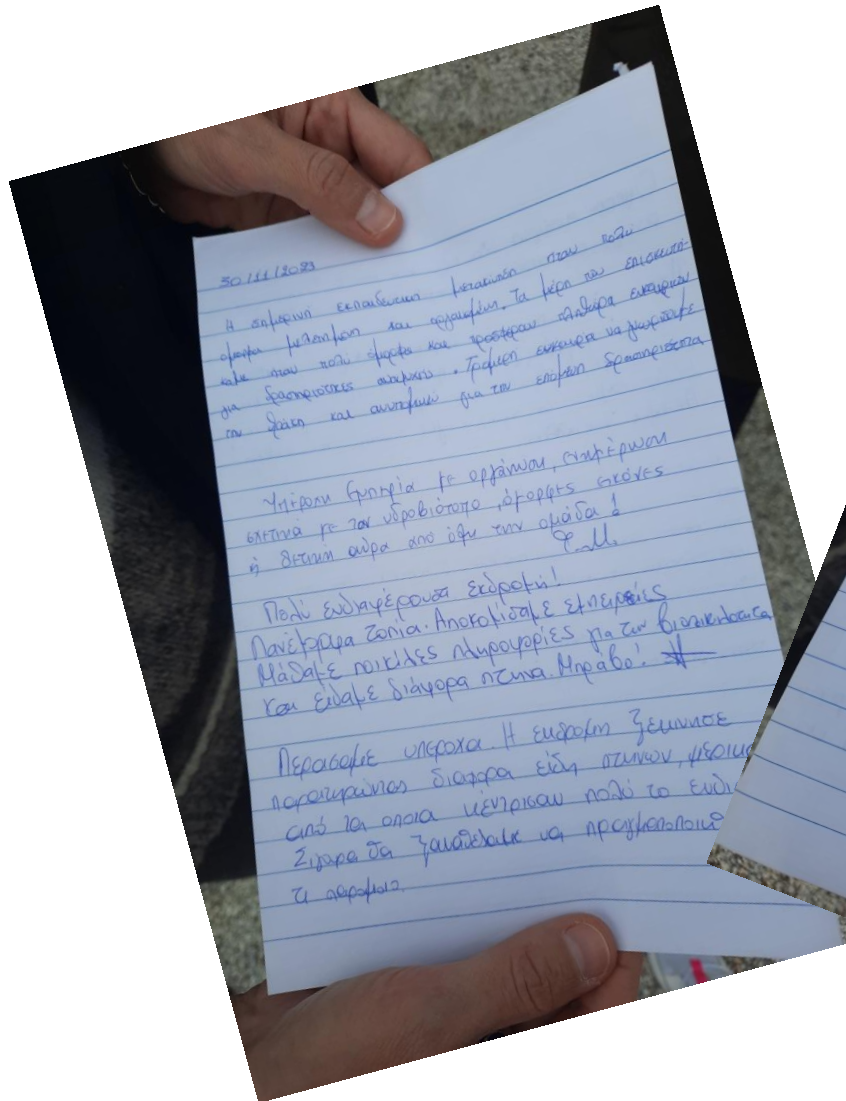 30/11/2023
Η σημερινή εκπαιδευτική μετακίνηση ήταν πολύ
όμορφα μελετημένη και οργανωμένη. Τα μέρη που επισκευτή-
καμε ήταν πολύ όμορφα και πρόσφεραν πληθώρα ευκαιριών
για δραστηριότητες αναψυχής. Τρομερή ευκαιρία να γνωρίσουμε
την Θράκη και ανυπομονώ για την επόμενη δραστηριότητα
Υπέροχη εμπειρία με οργάνωση, ενημέρωση
σχετικά με τον υδροβιότοπο, όμορφες εικόνες
ή θετική αύρα από όλη την ομάδα!
Φ.Μ.
Πολύ ενδιαφέρουσα εκδρομή!
Πανέμορφα τοπία. Αποκομίσαμε εμπειρίες
Μάθαμε ποικίλες πληροφορίες για την βιοποικιλότητα
και είδαμε διάφορα πτηνά. Μπράβο!
Περάσαμε υπέροχα. Η εκδρομή ξεκίνησε
παρατηρώντας διάφορα είδη πτηνών, μερικά
από τα οποία κέντρισαν πολύ το ενδι
Σίγουρα θα ξαναθέλαμε να πραγματοποιηθ
τι παρόμοιο.